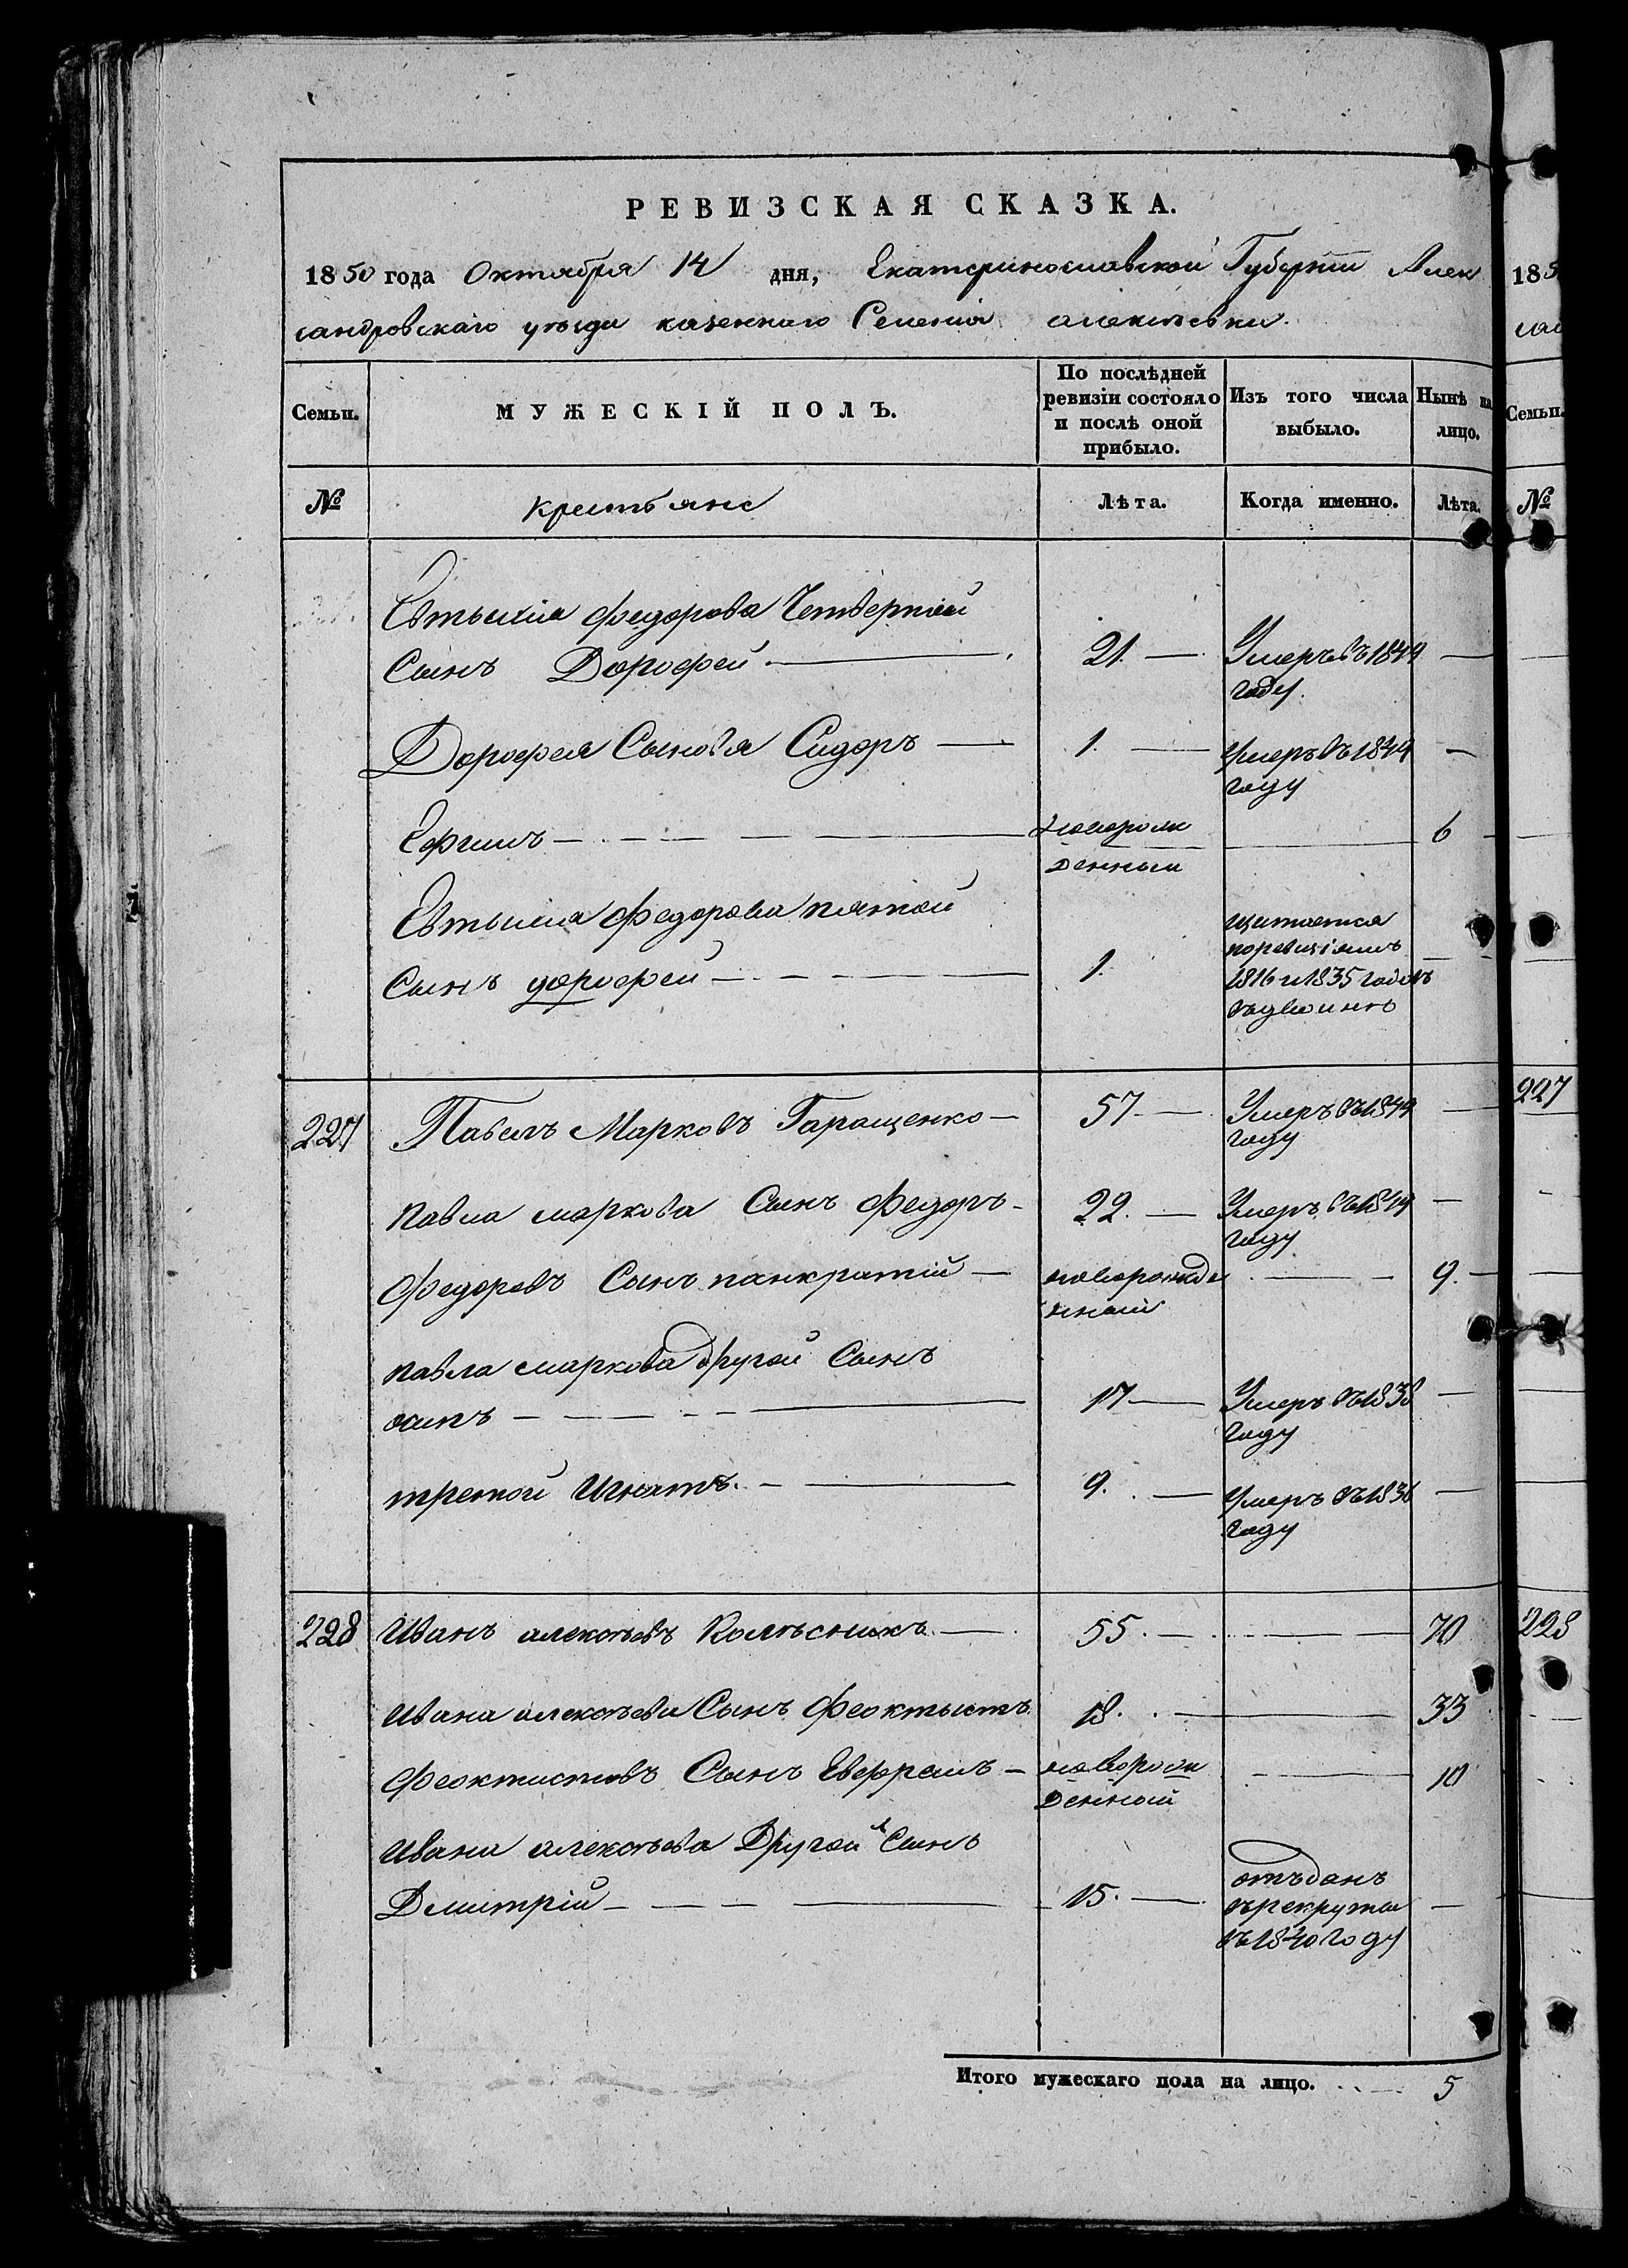 РЕВИЗСКАЯ СКАЗКА.
1850 года Октября 14 дня, Екатеринославской Губерніи Алек
сандровскаго уѣзда казеннаго Селенія алексѣевки.
Семьи.
МУЖЕСКІЙ ПОЛЪ.
По послѣдней
ревизіи состояло
и послѣ оной
прибыло.
Изъ того числа
выбыло.
Нынѣ на
лицо.
№
крестьяне
Лѣта.
Когда именно.
Лѣта.
Евтыхія федорова Четвертой
Сынъ Дорофей 21. Умеръ въ 1849
году.
Дорофея Сыновья Сидоръ 1. Умеръ въ 1844
году
Ефимъ новорож 6
денный
Евтыхия федорова пятой
Сынъ дорофей 1.
щитается
поревизіямъ
1816 и 1835 годовъ
въдвойнѣ
227 Павелъ Марковъ Гаращенко 57 Умеръ въ 1849
году
Павла маркова Сынъ Федоръ 22. Умеръ въ 1849
году
Федоровъ Сынъ панкратій новорожде 9.
нный
павла маркова другой Сынъ
осипъ 17 Умеръ въ 1838
году
третой Игнатъ. 9. Умеръ въ 1836
году
228 Иванъ алексѣевъ Колѣсникъ 55. 70
Ивана алексѣева Сынъ Феоктистъ 18. 33
Феоктистовъ Сынъ Ефремъ новорож 10
денный
Ивана алексѣева Другой Сынъ
Дмитрій 15.
отъданъ
врекруты
въ 1840 году
Итого мужескаго пола на лицо. 5
185
Семьи.
№
227
228